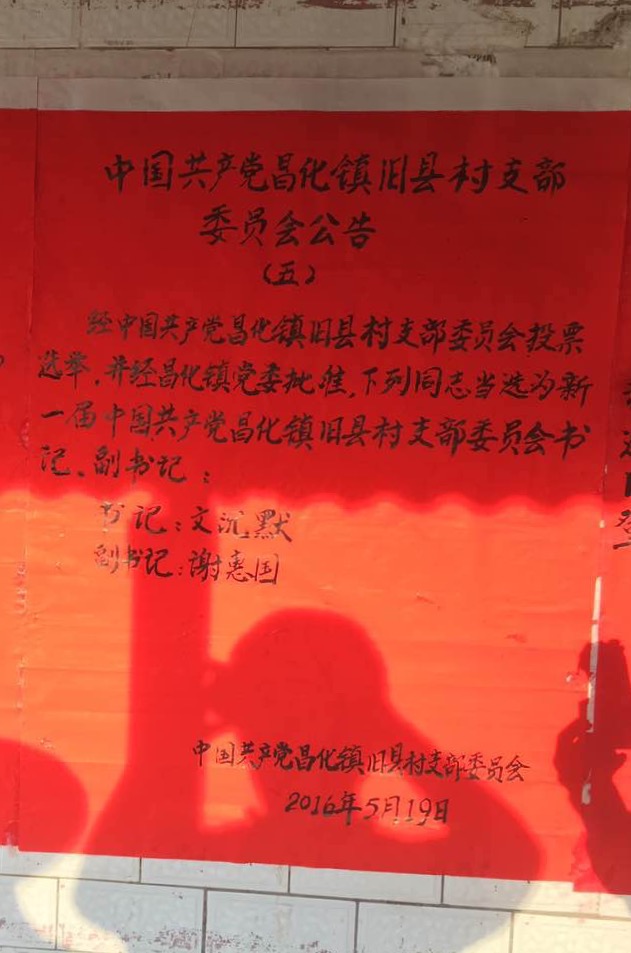 中国共产党昌化镇旧县村支部
委员会公告
（五）
经中国共产党昌化镇旧县村支部委员会投票
选举，并经昌化镇党委批准，下列同志当选为新
一届中国共产党昌化镇旧县村支部委员会书
记、副书记：
书记：文沉默
副书记：谢惠国
中国共产党昌化镇旧县村支部委员会
2016年5月19日